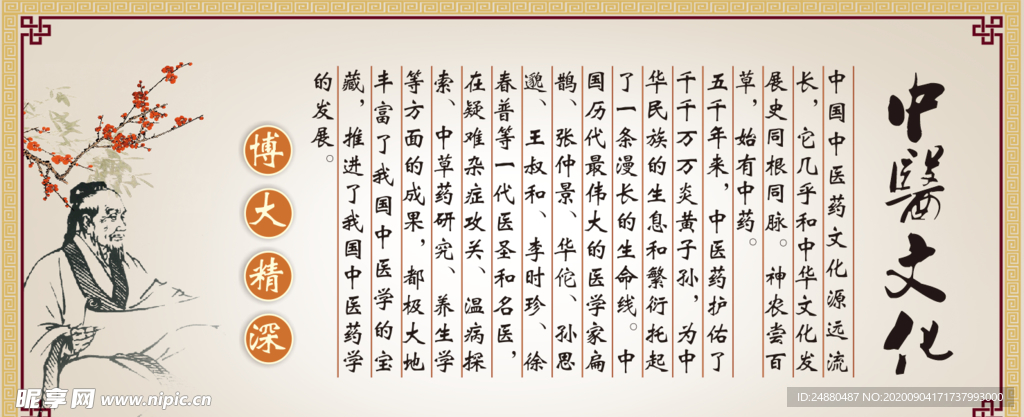 中醫文化
中国中医药文化源远流
长，它几乎和中华文化发
展史同根同脉。神农尝百
草，始有中药。
五千年来，中医药护佑了
千千万万炎黄子孙，为中
华民族的生息和繁衍托起
了一条漫长的生命线。中
国历代最伟大的医学家扁
鹊、张仲景、华佗、孙思
邈、王叔和、李时珍、徐
春普等一代医圣和名医，
在疑难杂症攻关、温病探
索、中草药研究、养生学
等方面的成果，都极大地
丰富了我国中医学的宝
藏，推进了我国中医药学
的发展。
博大精深
昵享网 www.nipic.cn
ID:24880487 NO:20200904171737993000